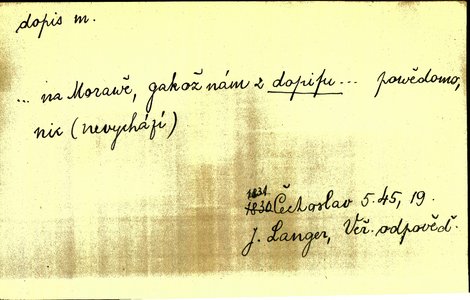 dopis m.
... na Morawě, gakož nám z dopisu ... powědomo,
nic (nevychází)
1831
1830 Čechoslav 5.45, 19.
J. Langer, Veř. odpověď.